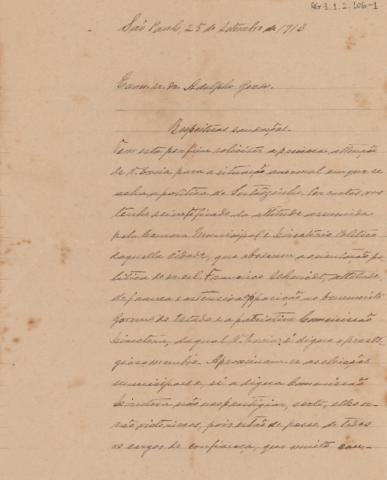 AG 3.1.2.106-1
São Paulo, 25 de Setembro de 1913
Exmo. sr. dr. Adolpho Gordo.
Respeitosas saudações.
Tem esta por fim solicitar a preciosa attenção
de V. Excia para a situação anormal em que se
acha a politica de Sertãozinho. Por cartas, vos
tenho scientificado da attitude assumida
pela Camara Municipal e Directorio Politico
daquella cidade, que obedecem a orientação po-
litica do sr. cel. Francisco Schmidt, attitude
de franca e ostensiva opposição ao benemerito
Governo do Estado e a patriotica Commissão
Directora, da qual V. Excia. é digno e presti-
gioso membro. Aproximam-se as eleições
municipaes e, si a digna Commissão
Directora não nos prestigiar, certo, elles se-
rão victoriosos, pois estão de posse de todos
os cargos de confiança, que muito con-